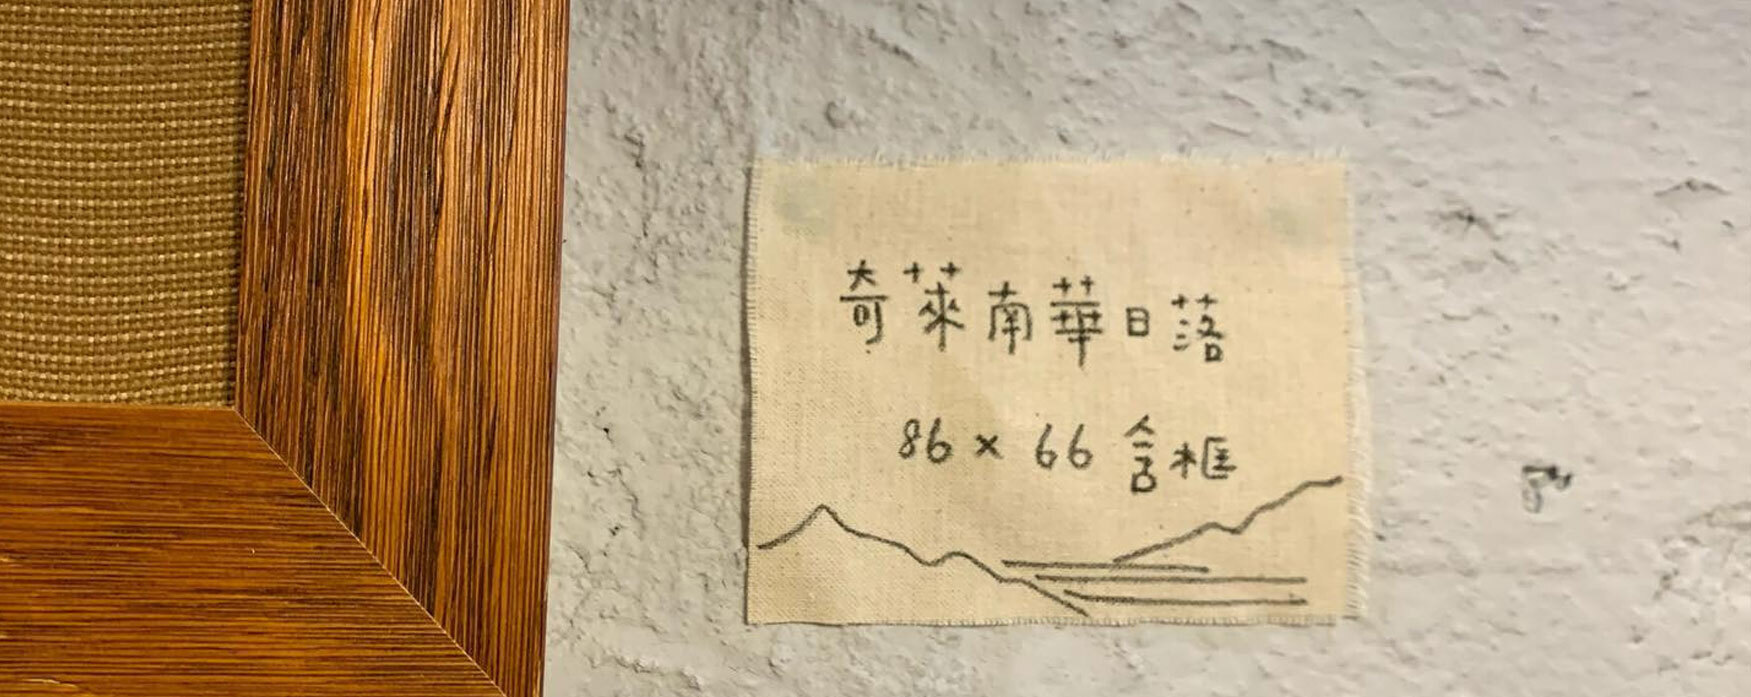 奇萊南華日落
86 × 66 含框